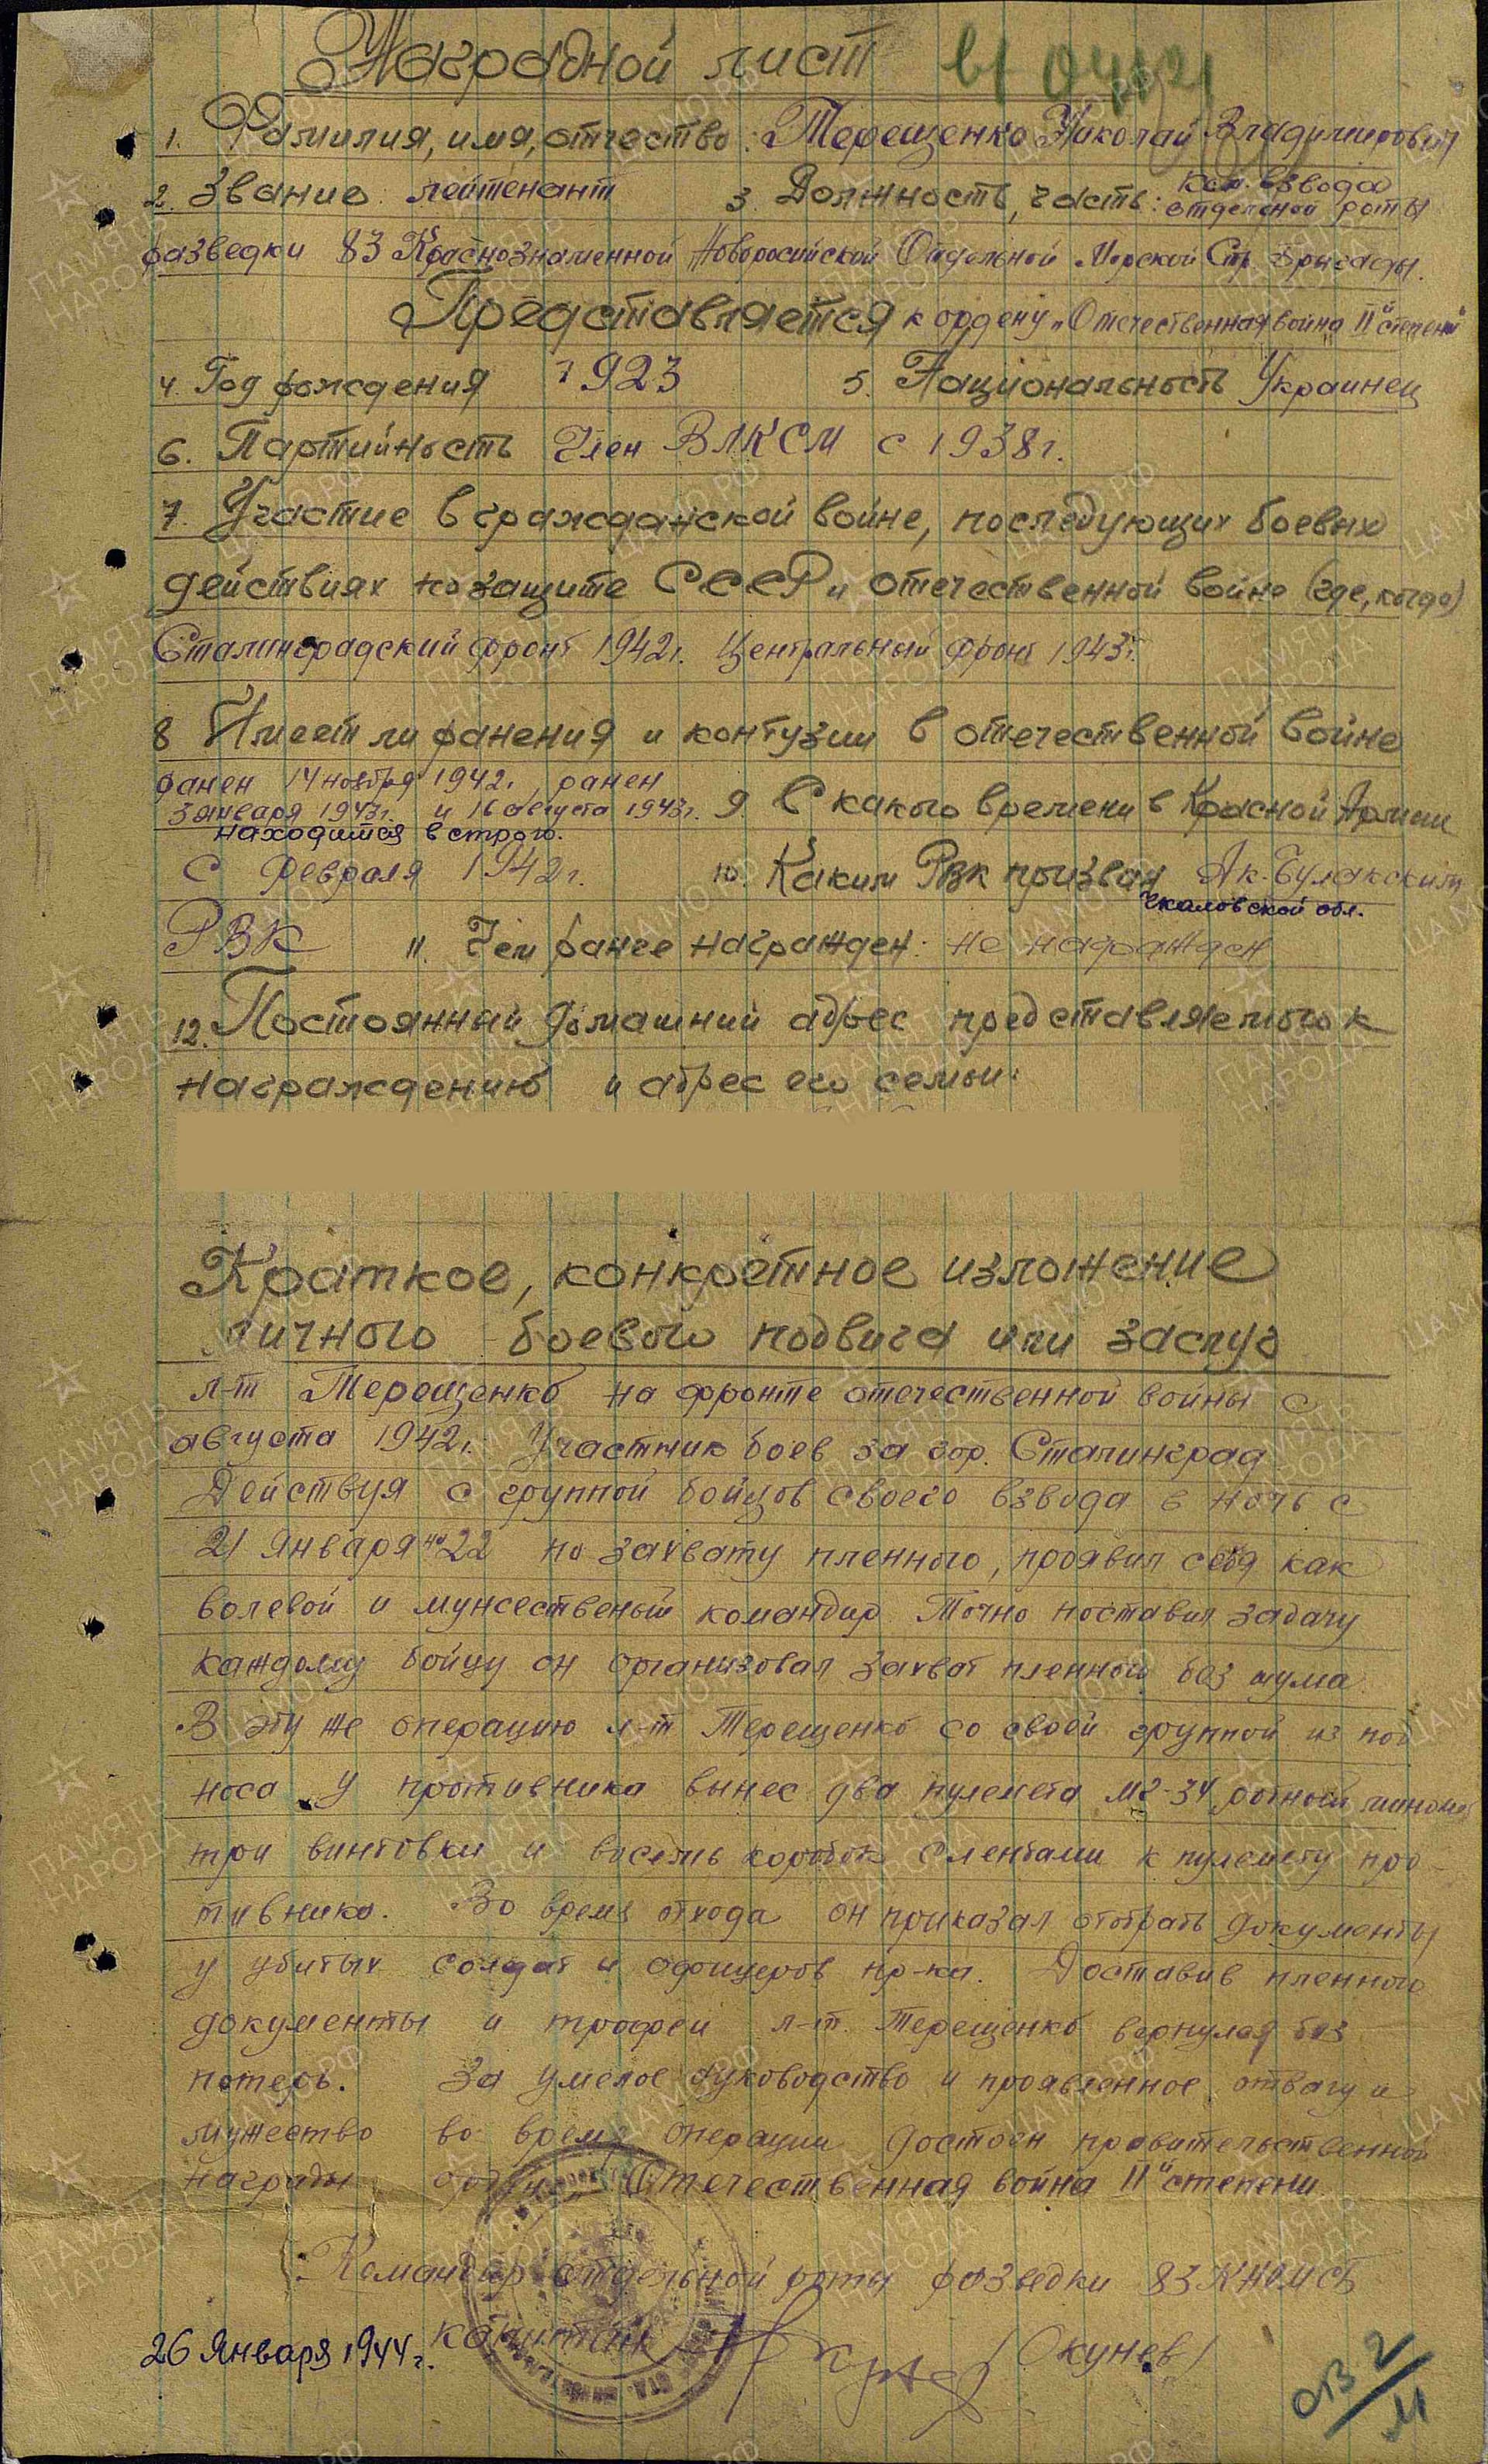 Наградной лист
1. Фамилия, имя, отчество: Терещенко Николай Владимирович
2. Звание: лейтенант 3. Должность, часть: ком. взвода
отдельной роты
разведки 83 Краснознаменной Новоросийской Отдельной Морской Стр. Бригады.
Представляется к ордену „Отечественная война II" степени"
4. Год рождения 1923 5. Национальность Украинец
6. Партийность Член ВЛКСМ с 1938г.
7. Участие в гражданской войне, последующих боевых
действиях по защите СССР и отечественной войне (где, когда)
Сталинградский фронт 1942г. Центральный фронт 1943г.
8 Имеет ли ранения и контузии в отечественной войне
ранен 14 ноября 1942г., ранен
3 января 1943г. и 16 августа 1943г. 9. С какого времени в Красной Армии
находится в строю.
С февраля 1942г. 10. Каким РВК призван Ак-Булакским
Чкаловской обл.
РВК 11. Чем ранее награжден: не награжден
12. Постоянный домашний адрес представляемого к
награждению и адрес его семьи:
Краткое, конкретное изложение
личного боевого подвига или заслуг
л-т Терещенко на фронте отечественной войны с
августа 1942г. Участник боев за гор. Сталинград
Действуя с группой бойцов своего взвода в ночь с
21 января на 22 по захвату пленного, проявил себя как
волевой и мужественый командир. Точно поставил задачу
каждому бойцу он организовал захват пленного без шума.
В эту же операцию л-т Терещенко со своей группой из под
носа у противника вынес два пулемета МГ-34 ротный миномет
три винтовки и восемь коробок с лентами к пулемету про-
тивника. Во время отхода он приказал отобрать документы
у убитых солдат и офицеров пр-ка. Доставив пленного
документы и трофеи л-т. Терещенко вернулся без
потерь. За умелое руководство и проявленное отвагу и
мужество во время операции достоен правительственной
награды орден „Отечественная война II" степени.
Командир отдельной роты разведки 83 КНОМСБ
капитан /Окунев/
26 Января 1944г.
ОВ 2
М